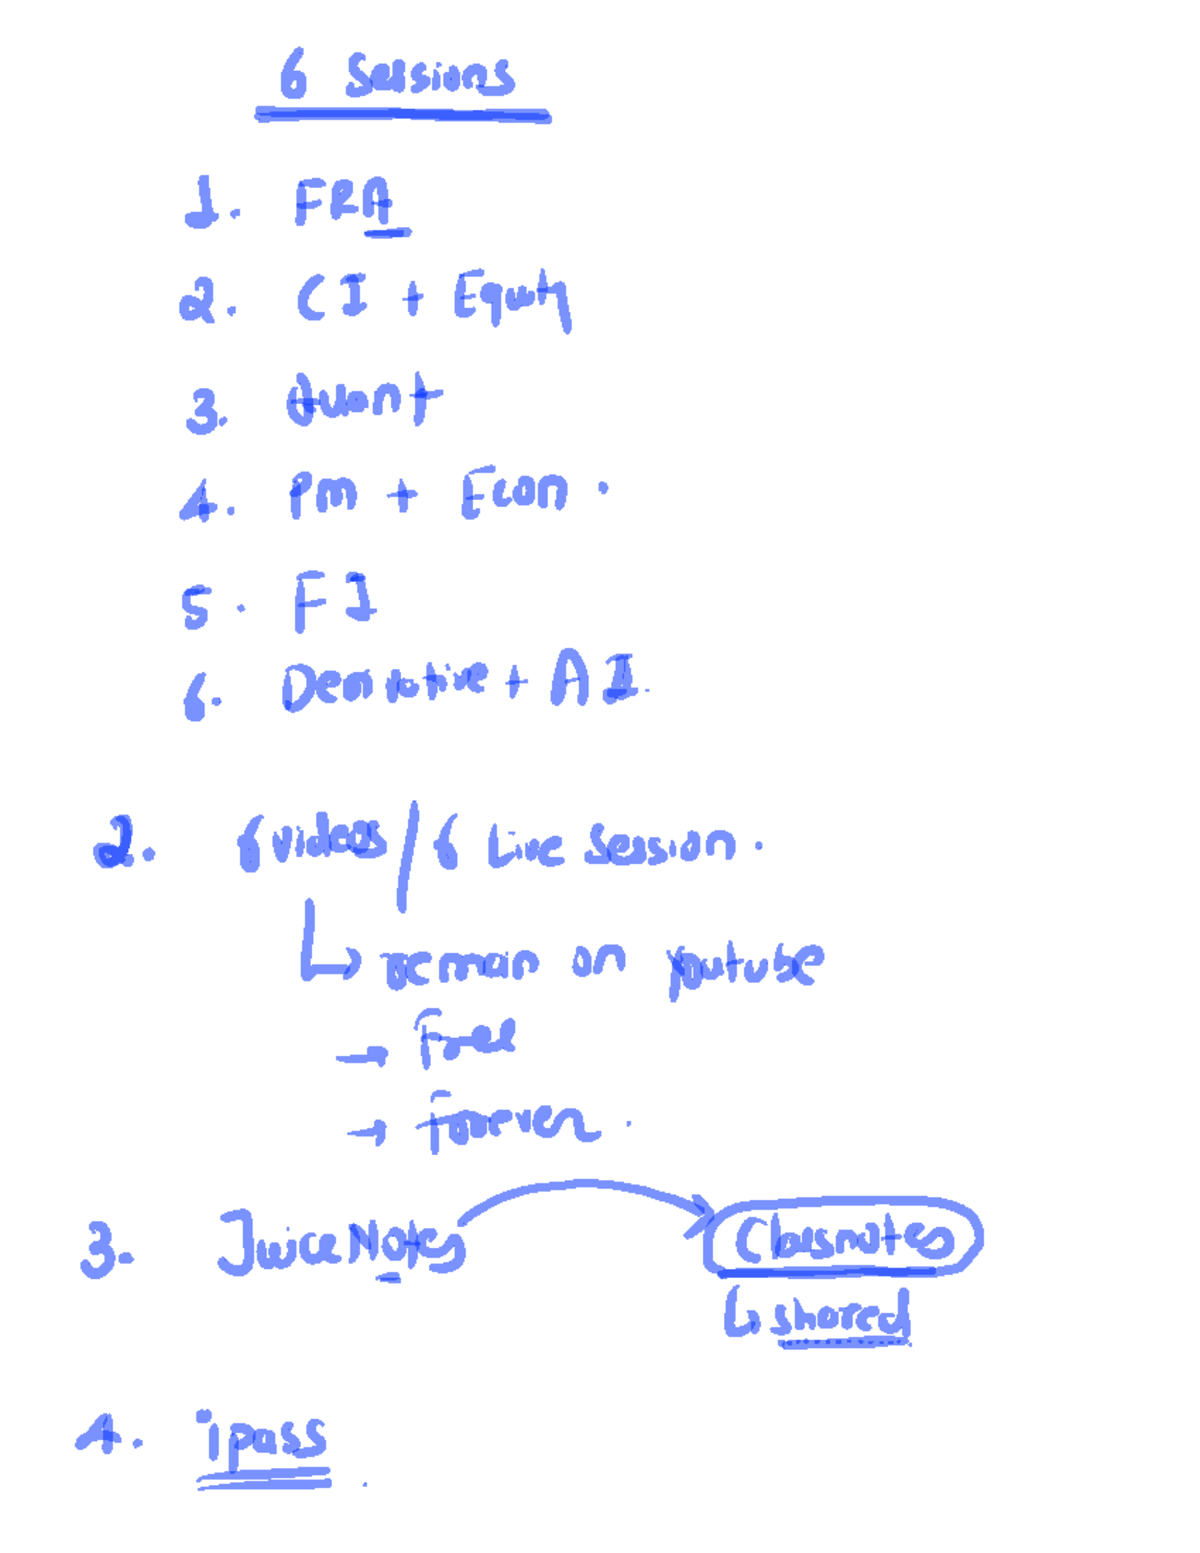 6 Sessions
1. FRA
2. CI + Equity
3. Quant
4. Pm + Econ.
5. FI
6. Derivative + AI.
2. 6 videos / 6 Live Session.
↳ remain on youtube
→ Free
→ Forever.
3. JuiceNotes → Classnotes
↳ shared
4. ipass